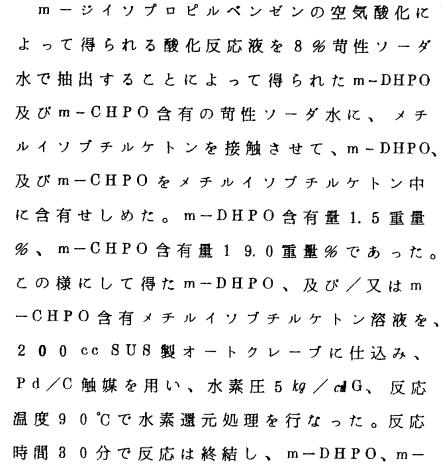 m－ジイソプロピルベンゼンの空気酸化に
よって得られる酸化反応液を8％苛性ソーダ
水で抽出することによって得られたm－DHPO
及びm－CHPO含有の苛性ソーダ水に、メチ
ルイソブチルケトンを接触させて、m－DHPO、
及びm－CHPOをメチルイソブチルケトン中
に含有せしめた。m－DHPO含有量1.5重量
％、m－CHPO含有量19.0重量％であった。
この様にして得たm－DHPO、及び／又はm
－CHPO含有メチルイソブチルケトン溶液を、
200cc SUS製オートクレーブに仕込み、
Pd／C触媒を用い、水素圧5kg／cm²G、反応
温度90℃で水素還元処理を行なった。反応
時間30分で反応は終結し、m－DHPO、m－